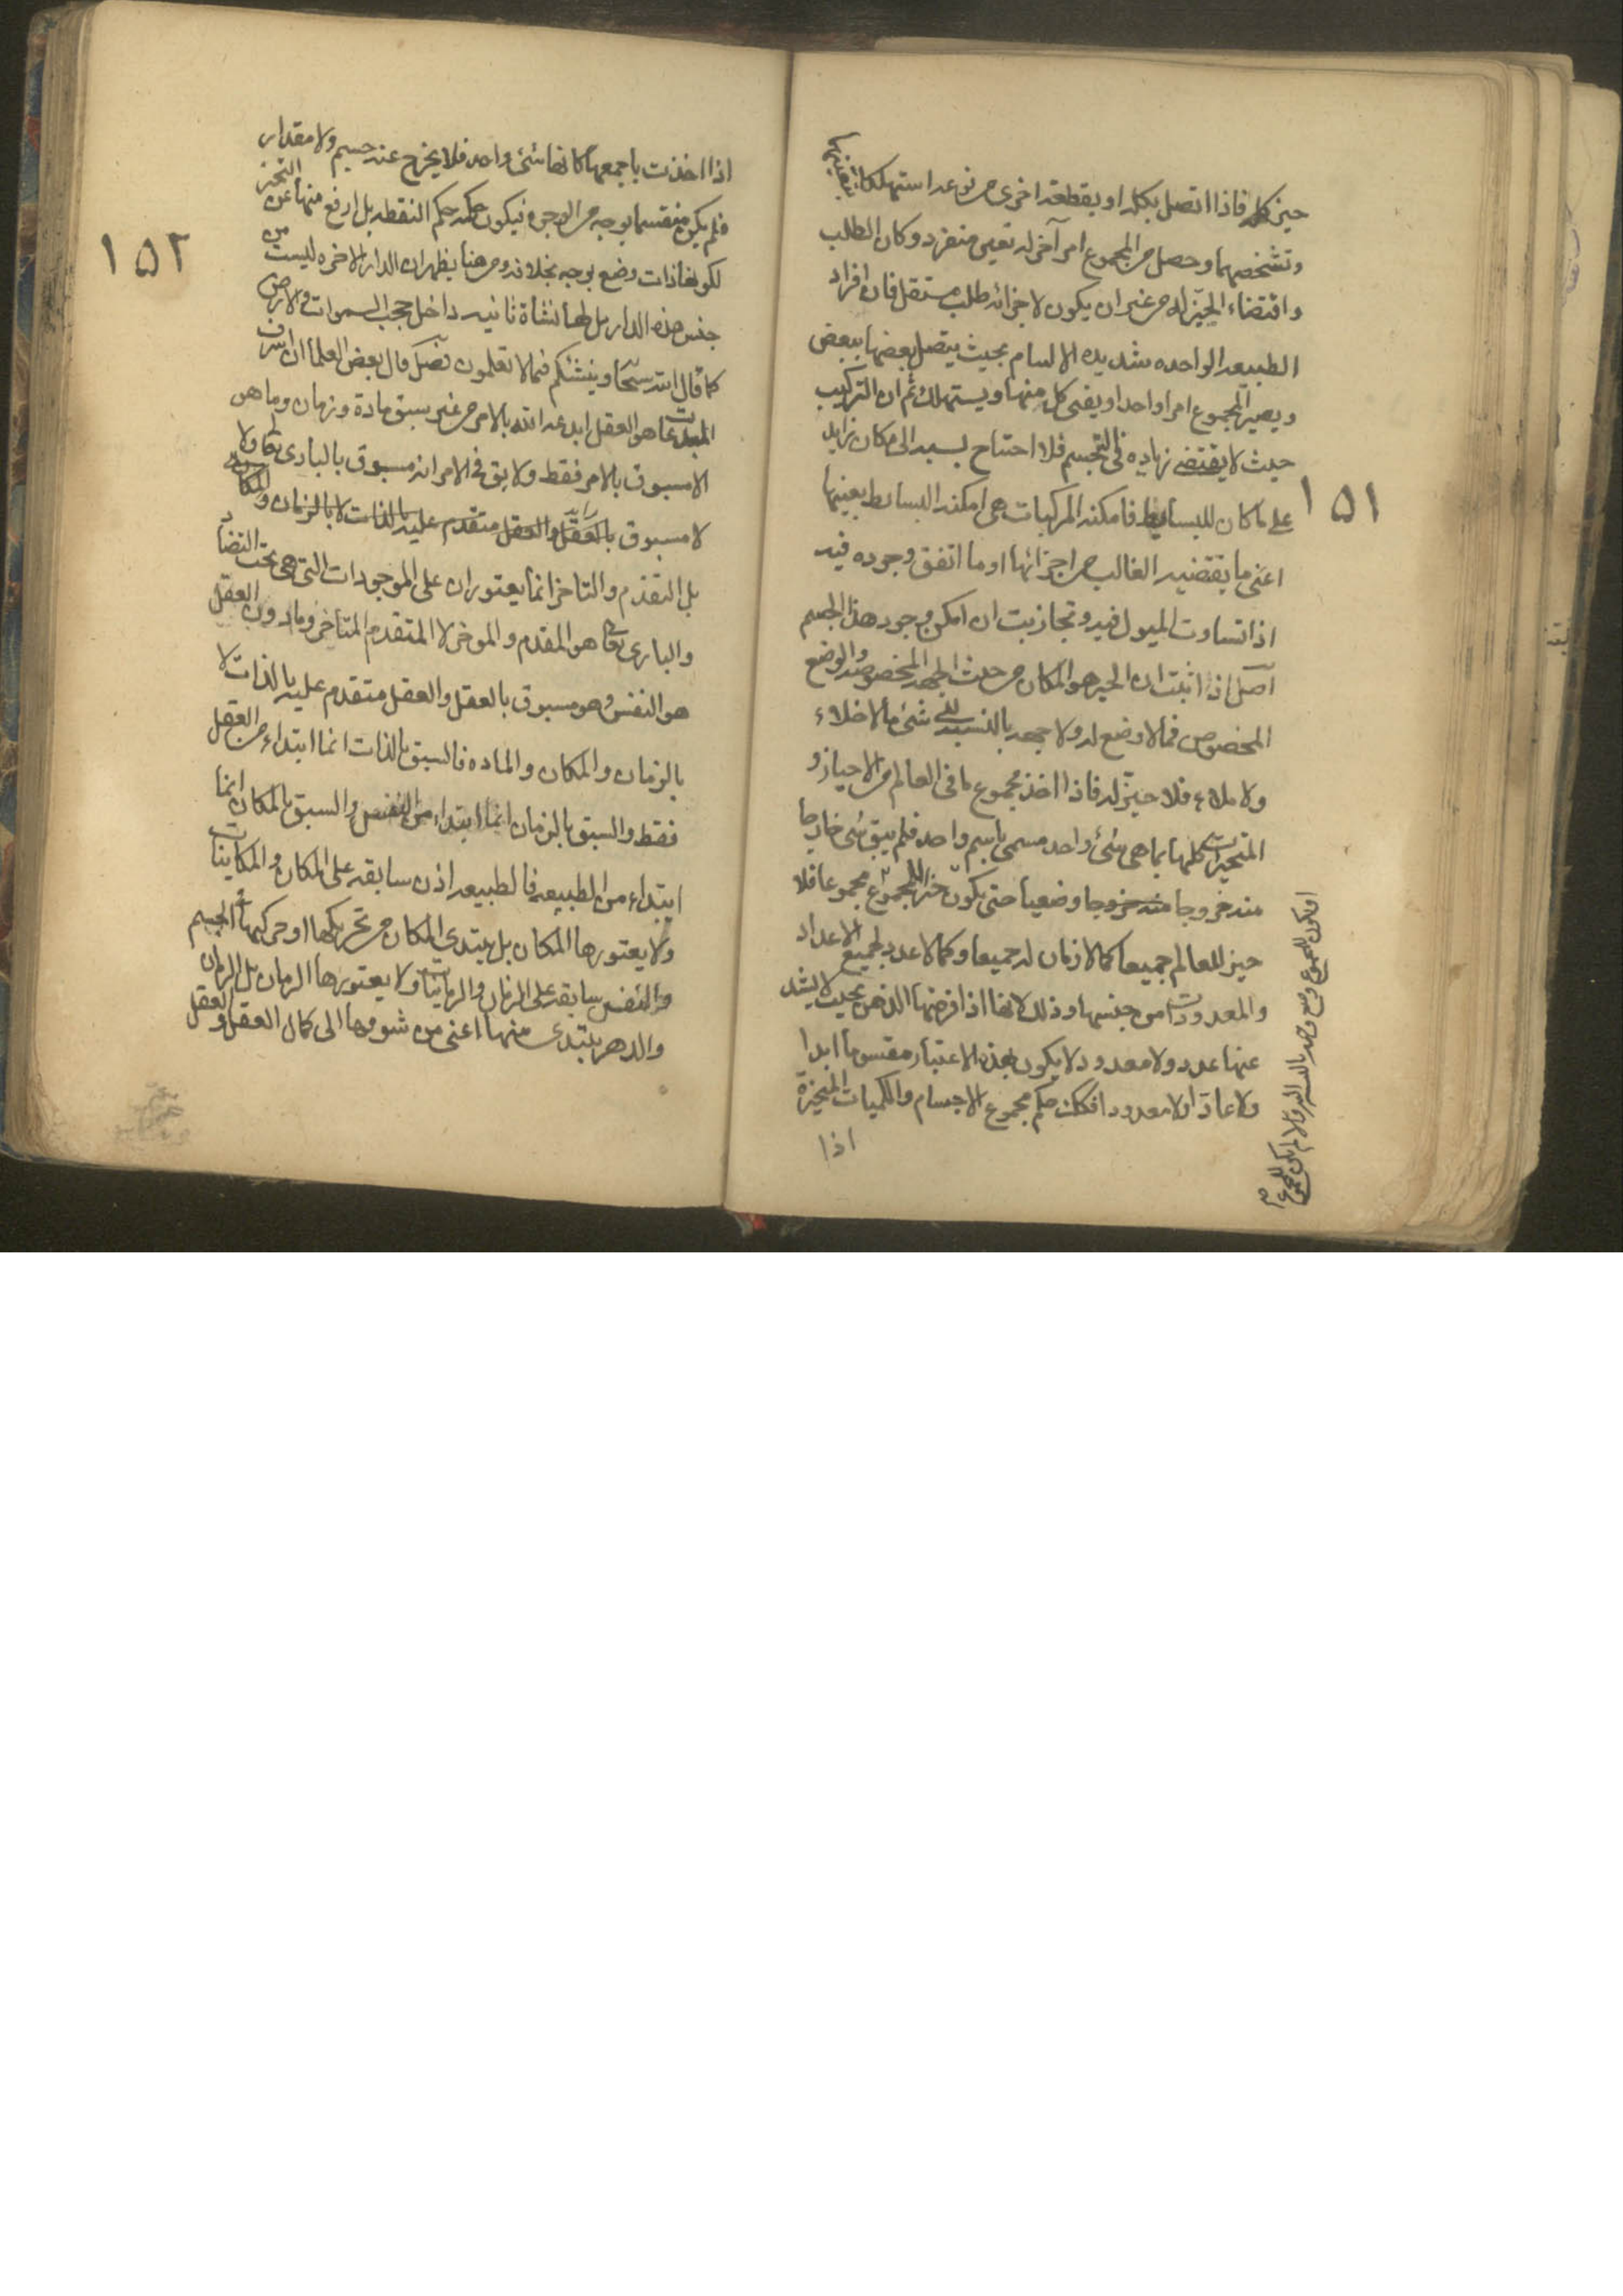 حيز كله فاذا اتصل بكله او بقطعة اخرى من نوعه استهلكا
وتشخصهما وحصل من المجموع امر آخر له تعين منفرد وكان الطلب
واقتضاء الحيّز له من غير ان يكون لاجزائه طلب مستقل فان افراد
الطبيعه الواحده شديده الالتيام بحيث يتصل بعضها ببعض
ويصير المجموع امرا واحدا ويفنى كل منها ويستهلك ثم ان التركيب
حيث لا يقتضى زياده فى التجسم فلا احتياج بسببه الى مكان زايد
على ما كان للبسايط فامكنه المركبات هى امكنه البسائط بعينها
اعنى ما يقتضيه الغالب من اجزائها او ما اتفق وجوده فيه
اذا تساوت الميول فيه وتجاذبت ان امكن وجود هذا الجسم
اصل اذا اثبت ان الحيز هو المكان من حيث الجهه المخصوصه والوضع
المخصوص فما لا وضع له ولا جهه بالنسبه الى شئ ما لا خلاء
ولا ملاء فلا حيّز له فاذا اخذ مجموع ما فى العالم من الاحياز و
المتحيزات كلها بما هى شئ واحد مسمى باسم واحد فلم يبق شئ خارجا
منه خروجا وضعيا حتى يكون حيز المجموع مجموعا فلا
حيز للعالم جميعا كما لا زمان له جميعا وكما لا عدد لجميع الاعداد
والمعدودات من جنسها وذلك لانها اذا فرضها الذهن بحيث لا يشذ
عنها عدد ولا معدود لا يكون بهذه الاعتبار مقسوما ابدا
ولا عادّا ولا معدودا فكك حكم مجموع الاجسام والكميات المتحيزة
اذا
١٥١
اذا اخذت باجمعها كانها شئ واحد فلا يخرج عنه جسم ولا مقدار
فلم يكن منقسما بوجه من الوجوه فيكون حكمه حكم النقطه بل ارفع منها عن التحيز
لكونها ذات وضع بوجه بخلافه ومن هنا يظهر ان الدار الاخره ليست من
جنس هذه الدار بل لها نشأة ثانيه داخل حجب السموات والارض
كما قال الله سبحا وينشئكم فيما لا تعلمون نصل قال بعض العلما ان اشرف
المبدعات هو العقل ابدعه الله بالامر من غير سبق مادة وزمان وما هو
الا مسبوق بالامر فقط ولا يق فى الامر انه مسبوق بالبارى تعا ولا
لا مسبوق بالعقل والعقل متقدم عليه بالذات لا بالزمان والمكان
بل التقدم والتاخر انما يعتوران على الموجودات التى هى تحت التضاد
والبارى تعا هو المقدم والموخر لا المتقدم المتاخر وما دون العقل
هو النفس وهو مسبوق بالعقل والعقل متقدم عليه بالذات لا
بالزمان والمكان والماده فالسبق بالذات انما ابتداء من العقل
فقط والسبق بالزمان انما ابتداء من النفس والسبق بالمكان انما
ابتداء من الطبيعه فالطبيعه اذن سابقه على المكان والمكانيات
ولا يعتورها المكان بل يبتدى المكان من تحريكها او حركتها فى الجسم
والنفس سابقه على الزمان والزمانيات ولا يعتورها الزمان بل الزمان
والدهر يبتدى منها اعنى من شوقها الى كمال العقل والعقل
١٥٢